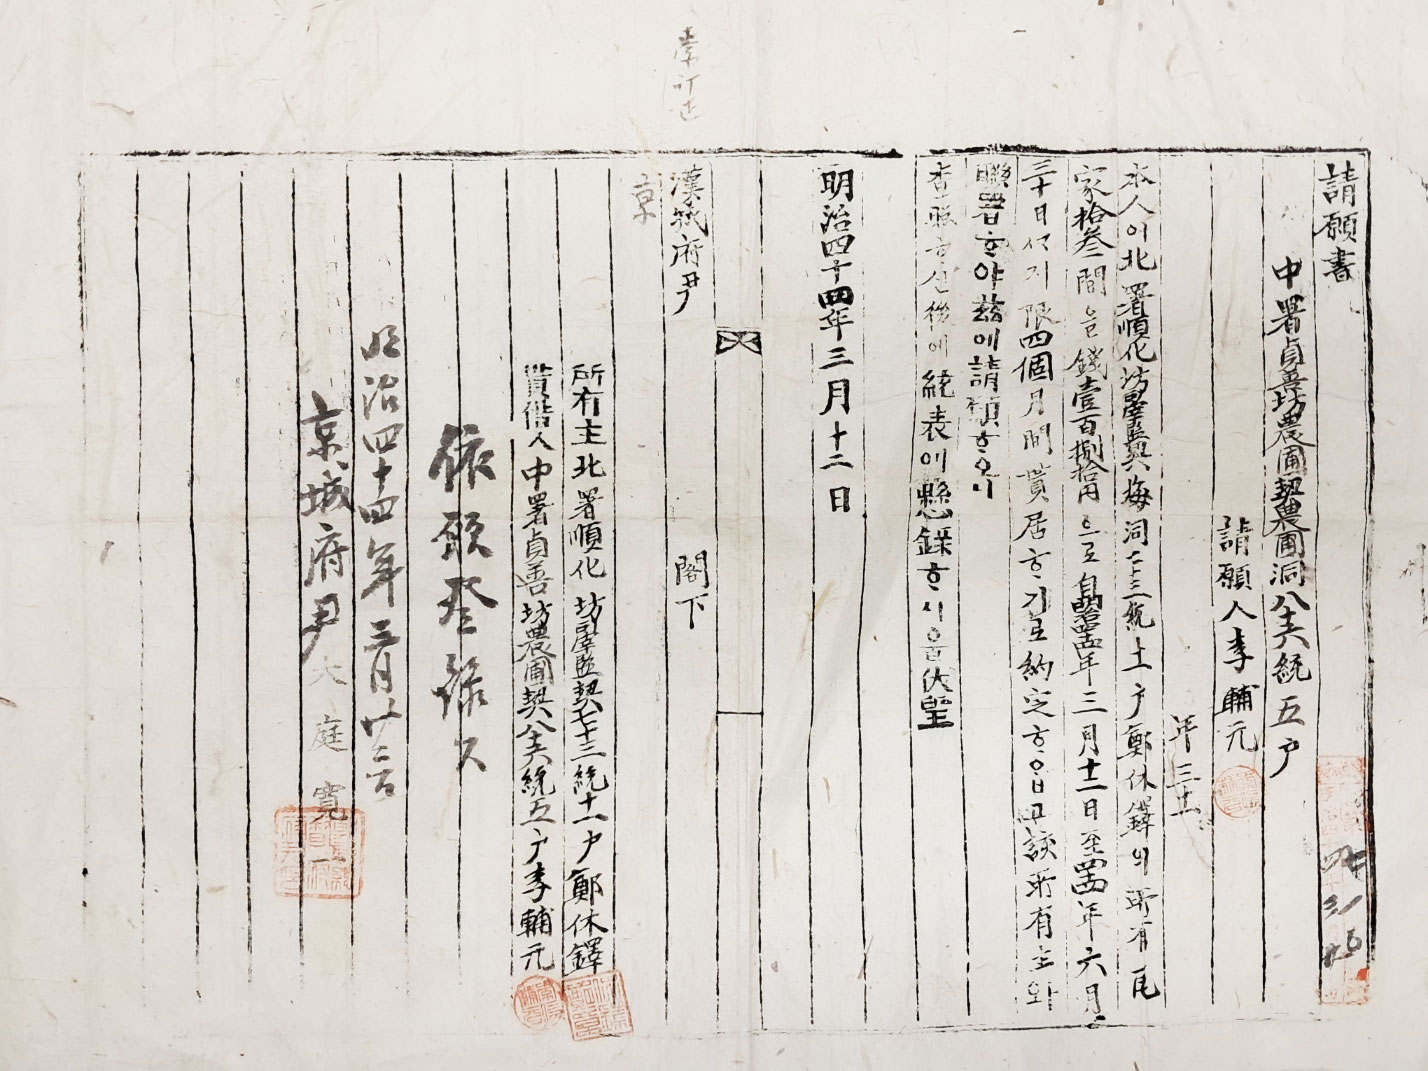 請願書
中署貞善坊農圃契農圃洞八十六統五戶
請願人李輔元
年三十
本人이北署順化坊司宰監契梅洞七十三統十一戶鄭休鐸의所有瓦
家拾叁間을錢壹百捌拾円으로自明治四十四年三月十二日至四十四年六月
三十日ᄭᆞ지限四個月間貰居ᄒᆞ기로約定ᄒᆞ온바該所有主와
聯署ᄒᆞ야玆에請願ᄒᆞ오니
查照ᄒᆞ신後에統表에懸錄ᄒᆞ시믈伏望
明治四十四年三月十二日
漢城府尹 閣下
京
所有主北署順化坊司宰監契七十三統十一戶鄭休鐸
貰借人中署貞善坊農圃契八十六統五戶李輔元
依願登錄
明治四十四年三月
京城府尹大庭寬一